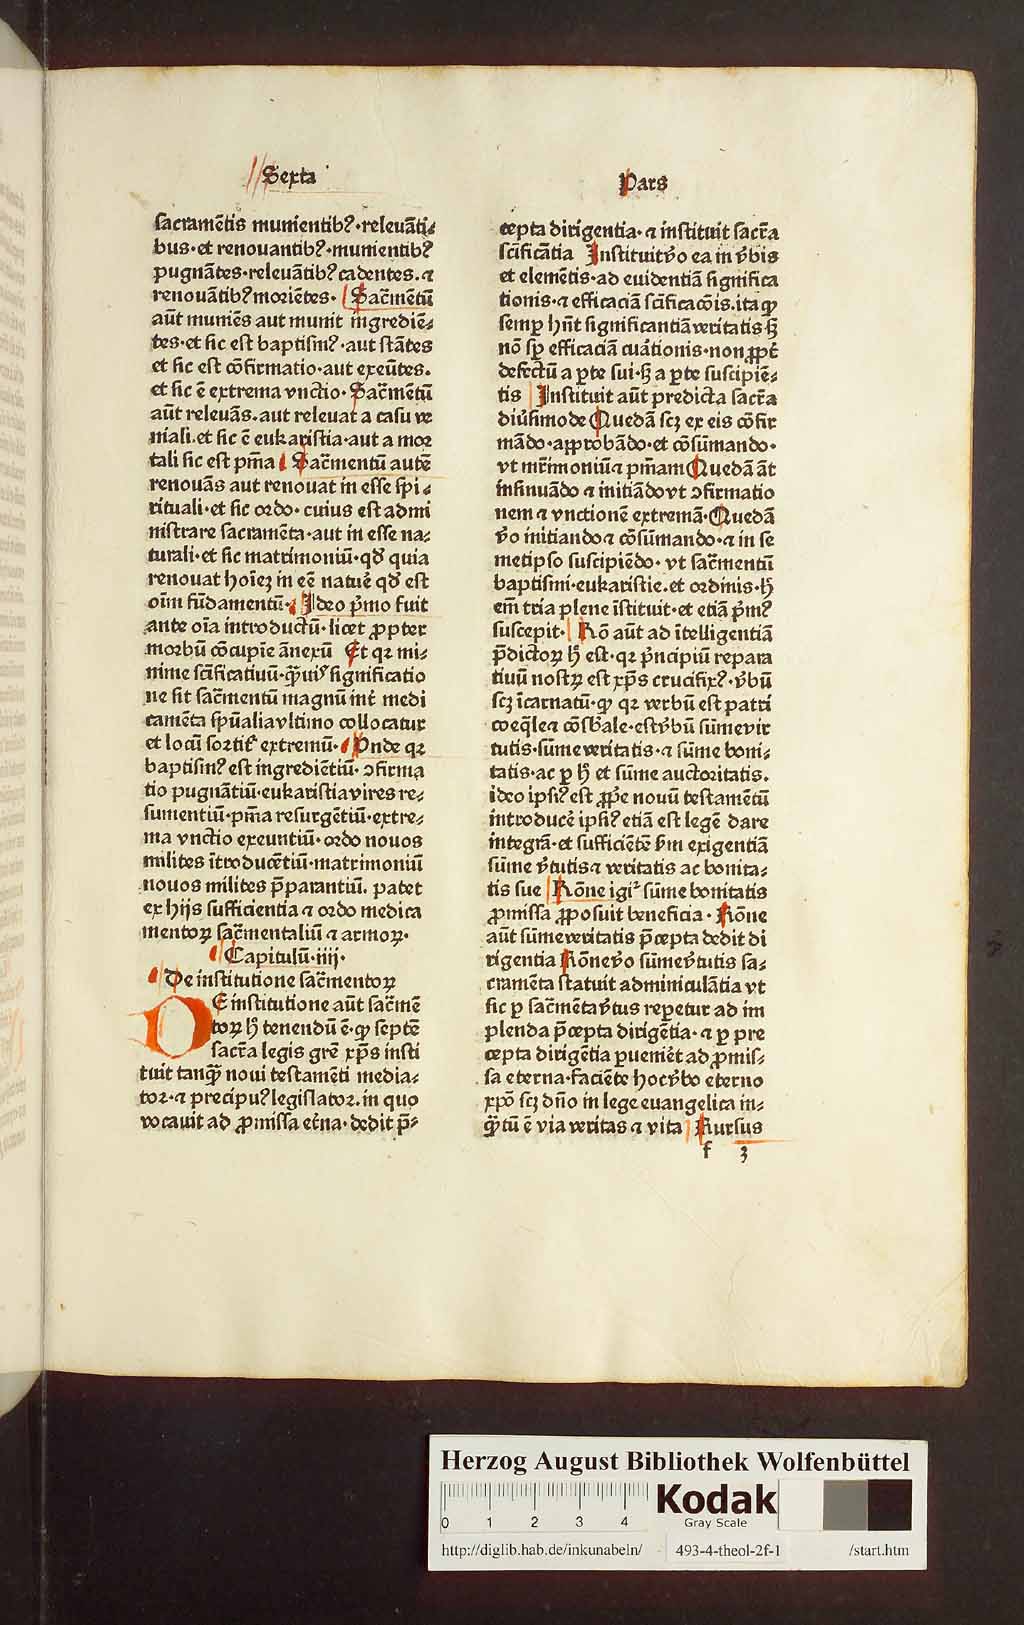 Sexta
Pars
sacramētis munientibꝰ·releuāti⸗
bus·et renouantibꝰ·munientibꝰ
pugnātes·releuātibꝰ cadentes.⁊
renouātibꝰ moriētes· Sacr̄mentū
aūt muniēs aut munit ingrediē⸗
tes·et sic est baptismꝰ·aut stātes
et sic est cōfirmatio·aut exeūtes.
et sic ē extrema vnctio·Sacr̄mentū
aūt releuās.aut releuat a casu ve
niali.et sic ē eukaristia·aut a mor
tali sic est pn̄ia Sacr̄mentū autē
renouās aut renouat in esse spi⸗
rituali·et sic ordo·cuius est admi
nistrare sacramēta·aut in esse na⸗
turali·et sic matrimoniū·qd̄ quia
renouat hoīeꝫ in eē naturē qd̄ est
oīm fūdamentū· Ideo pͥmo fuit
ante oīa introductū·licet ꝓpter
morbū cōcupie ānexū Et qꝛ mi⸗
nime sc̄ificatiuū·q̄ꝫuis significatio
ne sit sacr̄mentū magnū int̄ medi
camēta spūalia vltimo collocatur
et locū sortit᷑ extremū· Vnde qꝛ
baptismꝰ est ingrediētiū·ↄfirma
tio pugnātiū·eukaristia vires re⸗
sumentiū·pn̄ia resurgētiū·extre⸗
ma vnctio exeuntiū·ordo nouos
milites ītroducētiū·matrimoniū
nouos milites p̄parantiū. patet
ex hijs sufficientia ⁊ ordo medica
mentoꝝ sacr̄mentaliū ⁊ armoꝝ·
Capitulū·iiij·
De institutione sacr̄mentoꝝ
DE institutione aūt sacr̄mē
toꝝ hͦ tenendū ē·ꝙ septē
sacr̄a legis gr̄e xp̄s insti
tuit tanq̄ꝫ noui testamēti media⸗
tor·⁊ precipuꝰ legislator.in quo
vocauit ad ꝓmissa et̄na·dedit p̄⸗
cepta dirigentia·⁊ instituit sacr̄a
sc̄ificātia Instituit v̄o ea in v̄bis
et elemētis·ad euidentiā significa
tionis·⁊ efficaciā sc̄ificacōis.ita ꝙ
semꝑ hn̄t significantiā veritatis sꝫ
nō sꝑ efficaciā curationis·non ꝓpt̄
defectū a ꝑte sui·sꝫ a ꝑte suscipiē⸗
tis Instituit aūt predicta sacr̄a
diu͛simode Quedā scꝫ ex eis cōfir
mādo·approbādo·et cōsūmando·
vt mr̄imoniū ⁊ pn̄iam Quedā āt
insinuādo ⁊ initiādo vt ↄfirmatio
nem ⁊ vnctionē extremā·Quedā
v̄o initiando ⁊ cōsūmando·⁊ in se
metipso suscipiēdo·vt sacr̄mentū
baptismi·eukaristie.et ordinis·hͦ
em̄ tria plene īstituit·et etiā pͥmꝰ
suscepit· Rō aūt ad ītelligentiā
p̄dictoꝝ hͦ est·qꝛ pͥncipiū repara
tiuū nostꝝ est xp̄s crucifixꝰ·v̄bū
scꝫ īcarnatū·ꝙ qꝛ verbū est patri
coeq̄le ⁊ cōsb̄ale·est v̄bū sūme vir
tutis·sūme veritatis·⁊ sūme boni⸗
tatis·ac ꝑ hͦ et sūme auctoritatis.
ideo ipsiꝰ est ꝓpͥe nouū testamētū
introducē ipsiꝰ etiā est legē dare
integrā·et sufficiētē ẜm exigentiā
sūme v̄tutis ⁊ veritatis ac bonita⸗
tis sue Rōne igiᷣ sūme bonitatis
ꝓmissa ꝓposuit beneficia·Rōne
aūt sūme veritatis p̄cepta dedit di
rigentia Rōne v̄o sūme v̄tutis sa⸗
cramēta statuit adminiculātia vt
sic ꝑ sacr̄mēta v̄tus reꝑetur ad im
plenda p̄cepta dirigētia·⁊ ꝑ pre
cepta dirigētia ꝑueniēt ad ꝓmis⸗
sa eterna·faciēte hoc v̄bo eterno
xp̄o scꝫ dn̄o in lege euangelica in⸗
q̄ꝫtū ē via veritas ⁊ vita Rursus
f 3
Herzog August Bibliothek Wolfenbüttel
0 1 2 3 4
Kodak
Gray Scale
http://diglib.hab.de/inkunabeln/ 493-4-theol-2f-1 /start.htm